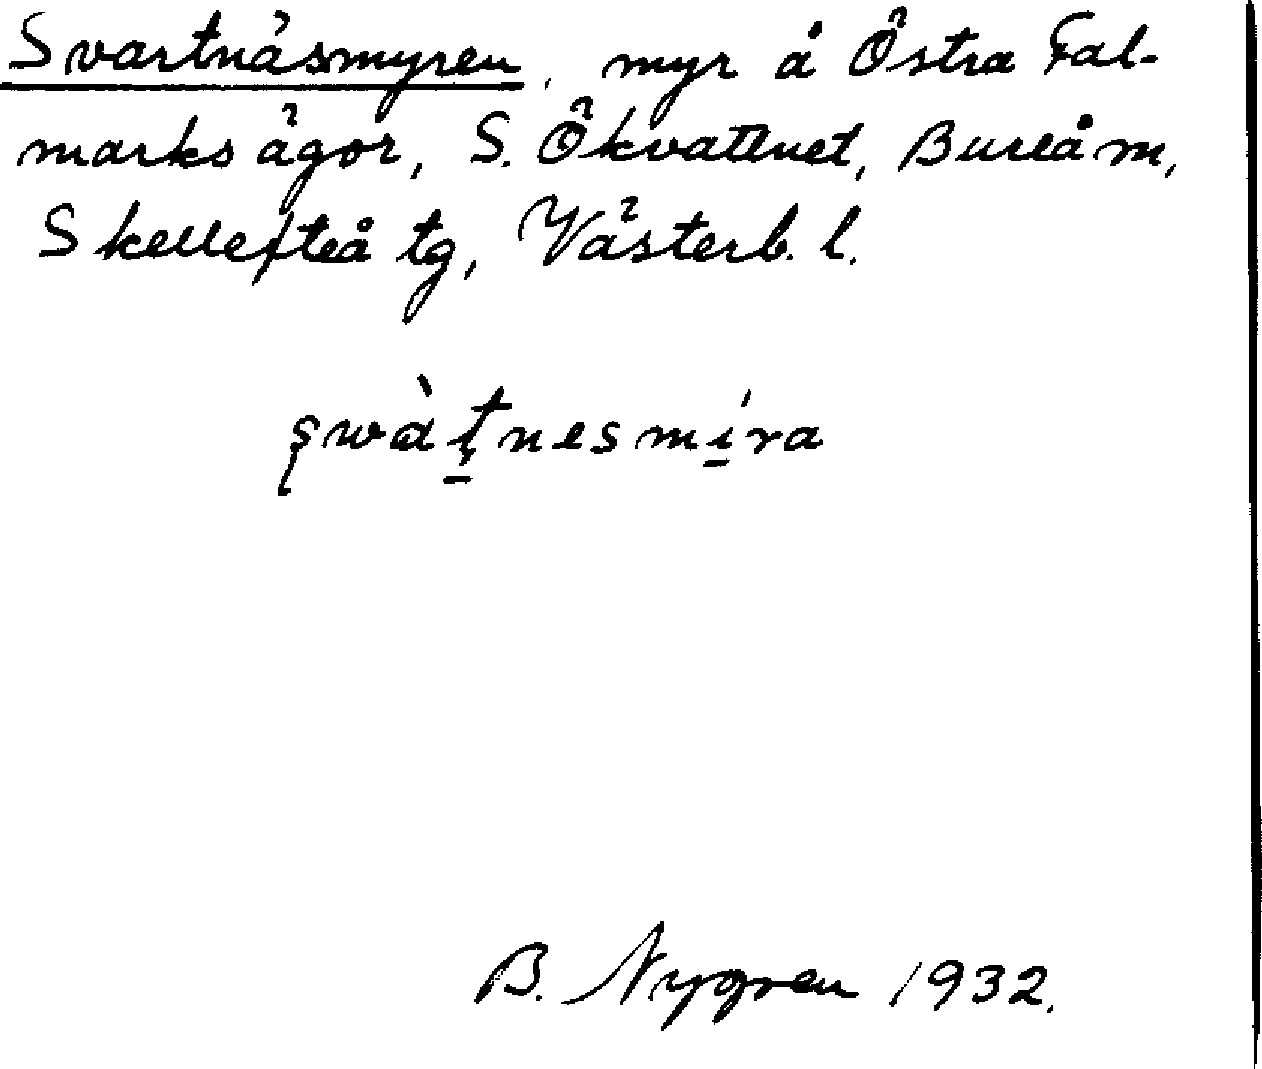 Svartnäsmyren, myr å Östra Fal-
marks ägor, S. Ökvattnet, Bureå m,
Skellefteå tg, Västerb. l.
șwàṭnesmíra
B. Nygren 1932.